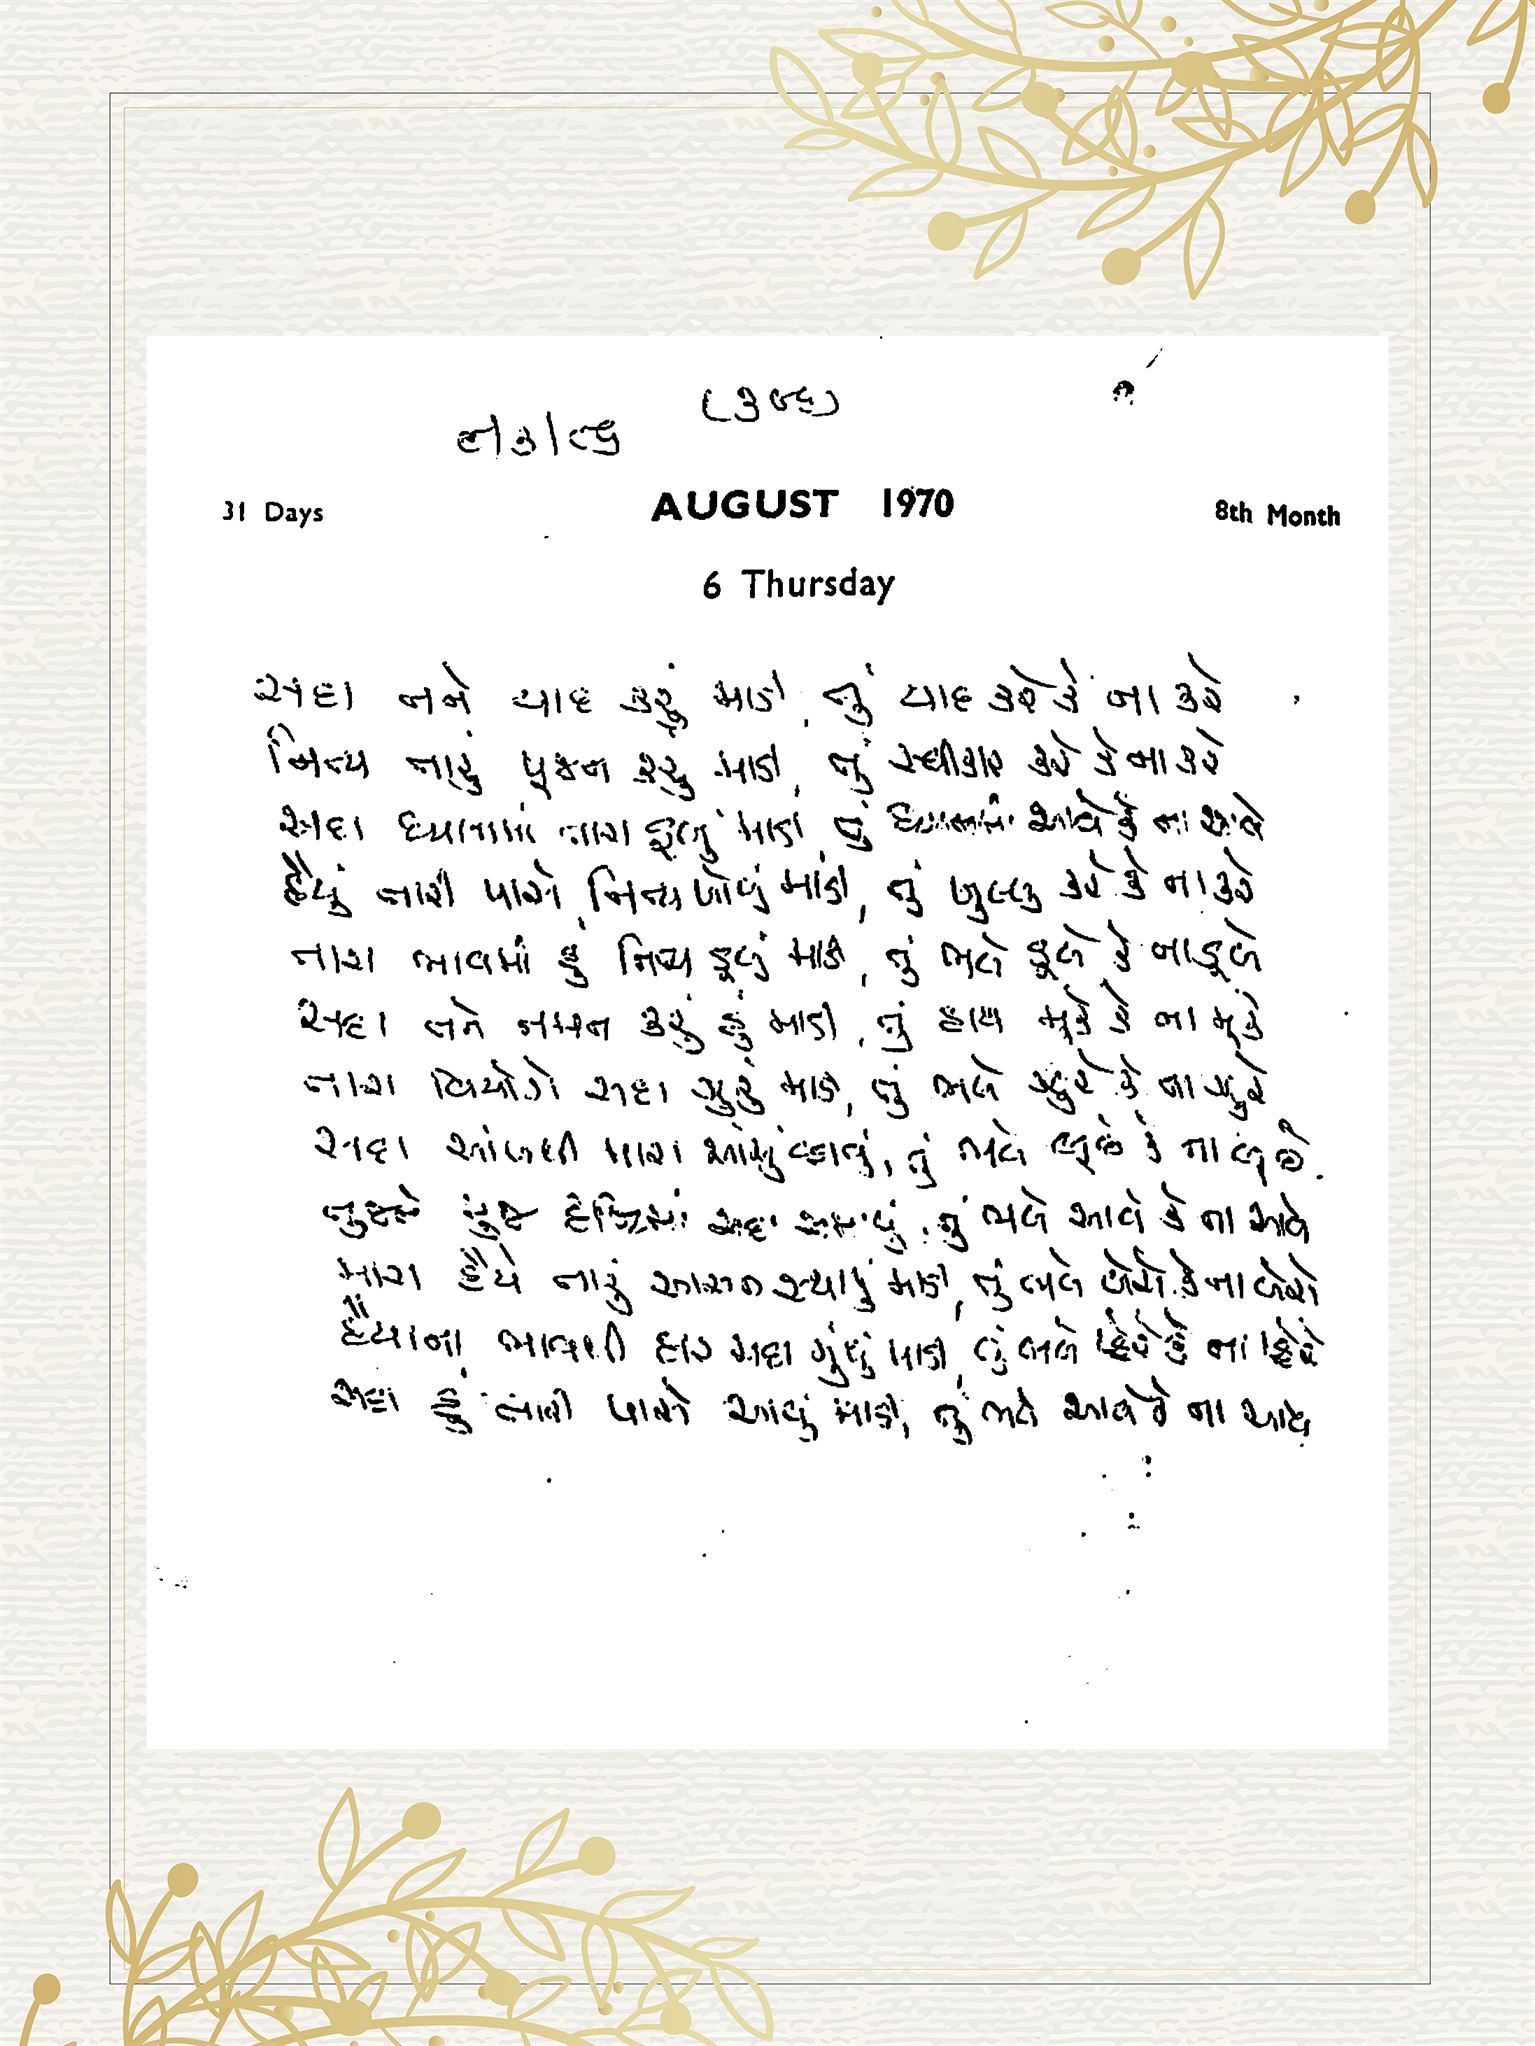 31 Days AUGUST 1970 8th Month
6 Thursday
સદા તને યાદ કરું માડી, તું યાદ કરે કે ના કરે
નિત્ય તારું પૂજન કરું માડી, તું સ્વીકાર કરે કે ના કરે
સદા ધ્યાનમાં તારા ડૂબું માડી, તું ધ્યાનમાં આવે કે ના આવે
હૈયું તારી પાસે નિત્ય ખોલું માડી, તું ખુલ્લુ કરે કે ના કરે
તારા ભાવમાં હું નિત્ય ડૂબું માડી, તું ભલે ડૂબે કે ના ડૂબે
સદા તને નમન કરું હું માડી, તું હાથ મૂકે કે ના મૂકે
તારા વિયોગે સદા ઝુરું માડી, તું ભલે ઝુરે કે ના ઝુરે
સદા આંખથી મારા આંસું વ્હાવું, તું ભલે લૂછે કે ના લૂછે.
તુજને મુજ દૃષ્ટિમાં સદા સમાવું, તું ભલે આવે કે ના આવે
મારા હૈયે તારું આસન સ્થાપું માડી, તું ભલે બેસે કે ના બેસે
હૈયાના ભાવથી હાર સદા ગુંથું માડી, તું ભલે પ્હેરે કે ના પ્હેરે
સદા હું તારી પાસે આવું માડી, તું ભલે આવે કે ના આવે